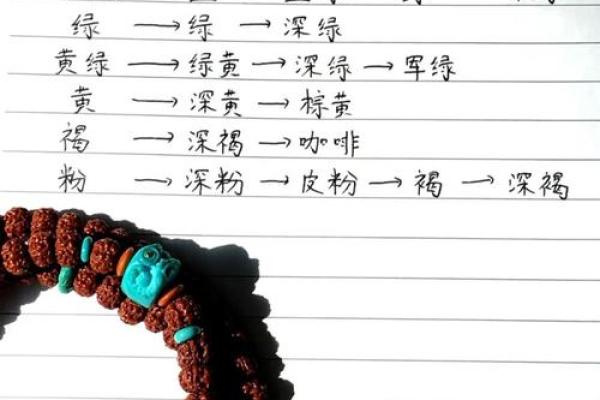 绿 → 绿 → 深绿
黄绿 → 绿黄 → 深绿 → 军绿
黄 → 深黄 → 棕黄
褐 → 深褐 → 咖啡
粉 → 深粉 → 皮粉 → 褐 → 深褐